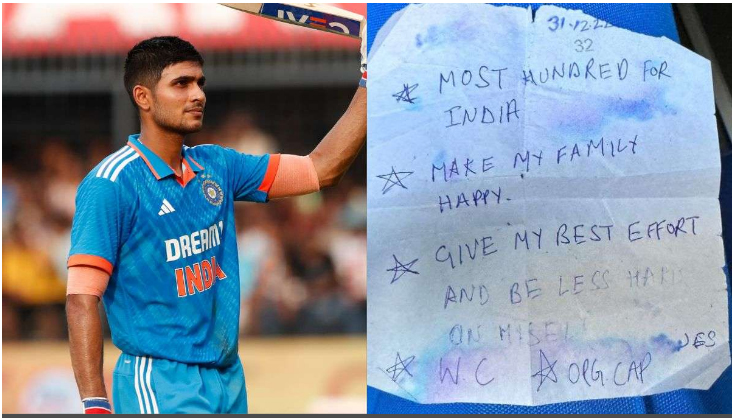 DREAM
INDIA
31.12.22
32
MOST HUNDRED FOR
INDIA
MAKE MY FAMILY
HAPPY.
GIVE MY BEST EFFORT
AND BE LESS
ON MYSELF
W.C ORG.CAP